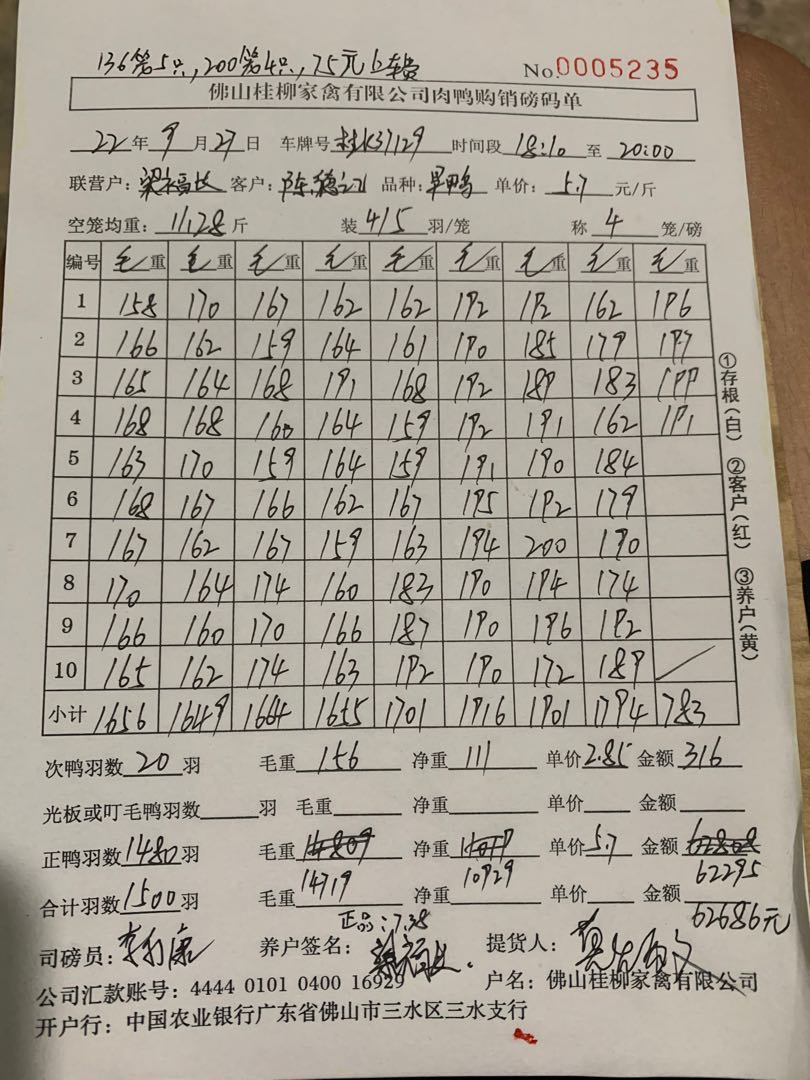 136第5只,200第4只,75元上车费
No.0005235
佛山桂柳家禽有限公司肉鸭购销磅码单
22年9月27日 车牌号桂K37129 时间段 18:10 至 20:00
联营户: 梁福长 客户: 陈德 品种: 旱鸭 单价: 5.7 元/斤
空笼均重: 11.28 斤 装 4/5 羽/笼 称 4 笼/磅
编号 毛重 毛重 毛重 毛重 毛重 毛重 毛重 毛重 毛重
1 158 170 167 162 162 192 192 162 196
2 166 162 159 164 161 190 185 179 197
3 165 164 168 191 168 192 189 183 199
4 168 168 160 164 159 192 191 162 191
5 163 170 159 164 159 191 190 184
6 168 167 166 162 167 195 192 179
7 167 162 167 159 163 194 200 190
8 170 164 174 160 183 190 194 174
9 166 160 170 166 187 190 196 192
10 165 162 174 163 192 190 172 189
小计 1656 1649 1664 1655 1701 1916 1901 1794 783
①存根(白) ②客户(红) ③养户(黄)
次鸭羽数 20 羽 毛重 156 净重 111 单价 2.85 金额 316
光板或叮毛鸭羽数 羽 毛重 净重 单价 金额
正鸭羽数 1480 羽 毛重 净重 单价 5.7 金额
14719 10929 62295
合计羽数 1500 羽 毛重 净重 单价 金额
62686元
正品:7.38
司磅员: 养户签名: 梁福长. 提货人:
公司汇款账号: 4444 0101 0400 16929 户名: 佛山桂柳家禽有限公司
开户行: 中国农业银行广东省佛山市三水区三水支行